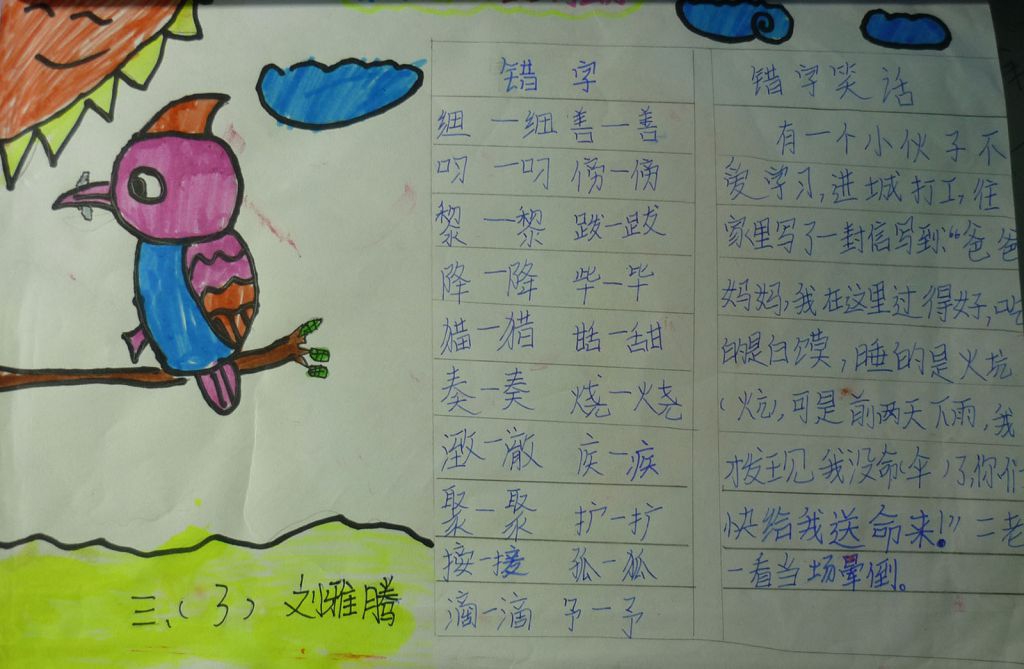 错字
细 一细 善一善
叨 一叨 傍一傍
黎 一黎 跋一跋
降 一降 毕一毕
猫一猎 甜一甜
奏一奏 烧一烧
澈一澈 疾一疾
聚一聚 扩一扩
按一接 孤一狐
滴一滴 予一予
错字笑话
有一个小伙子不
爱学习,进城打工,往
家里写了一封信写到:“爸爸
妈妈,我在这里过得好,吃
的是白馍,睡的是火坑
(火炕),可是前两天下雨,我
才发现我没命(伞)了,你们
快给我送命来!”二老
一看当场晕倒。
三、(3) 刘雅腾